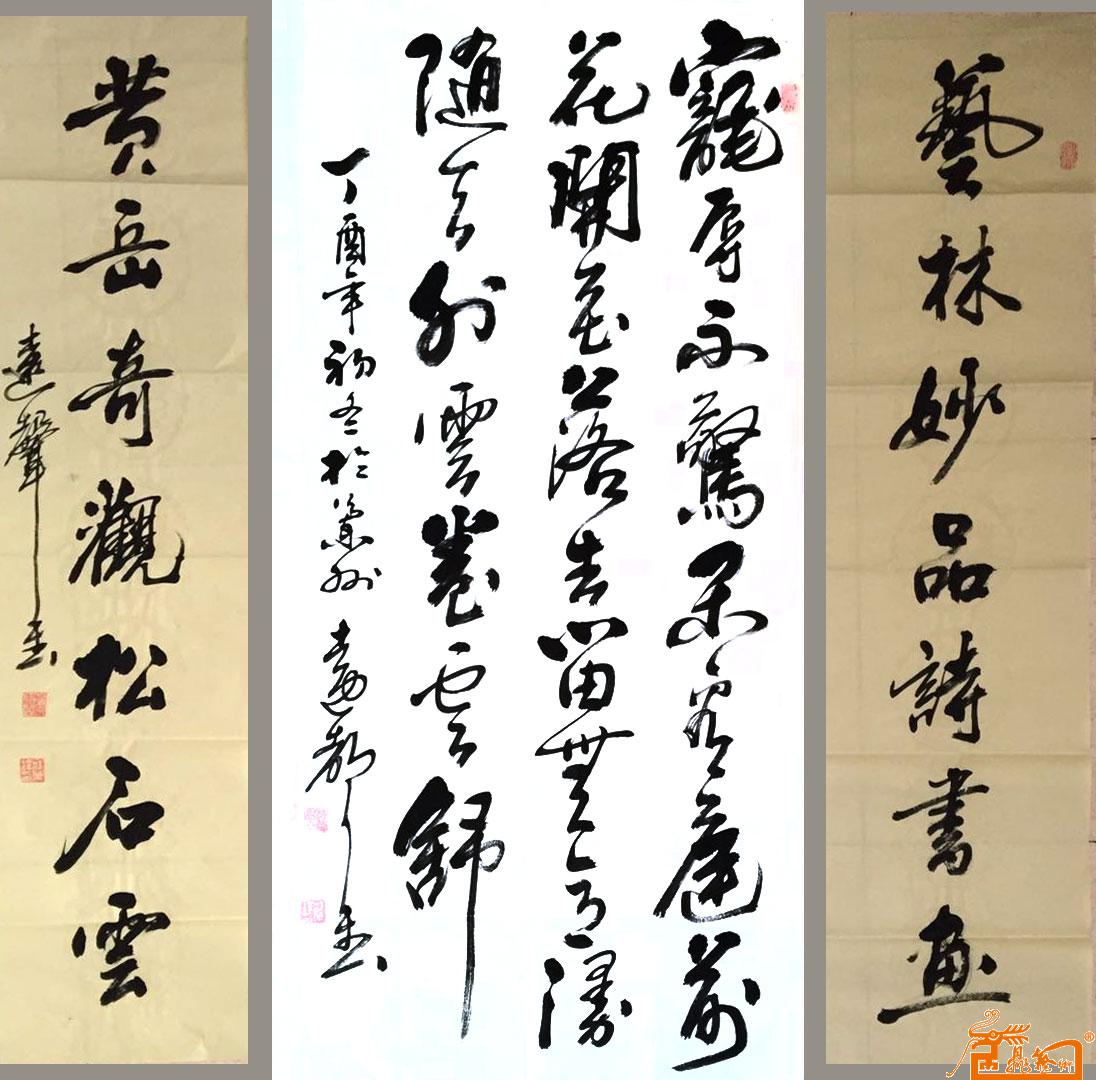 藝林妙品詩書畫
寵辱不驚閑看庭前
花開花落去留無意漫
隨天外雲卷雲舒
丁酉年初冬於州遠聲書
黃岳奇觀松石雲
遠聲書